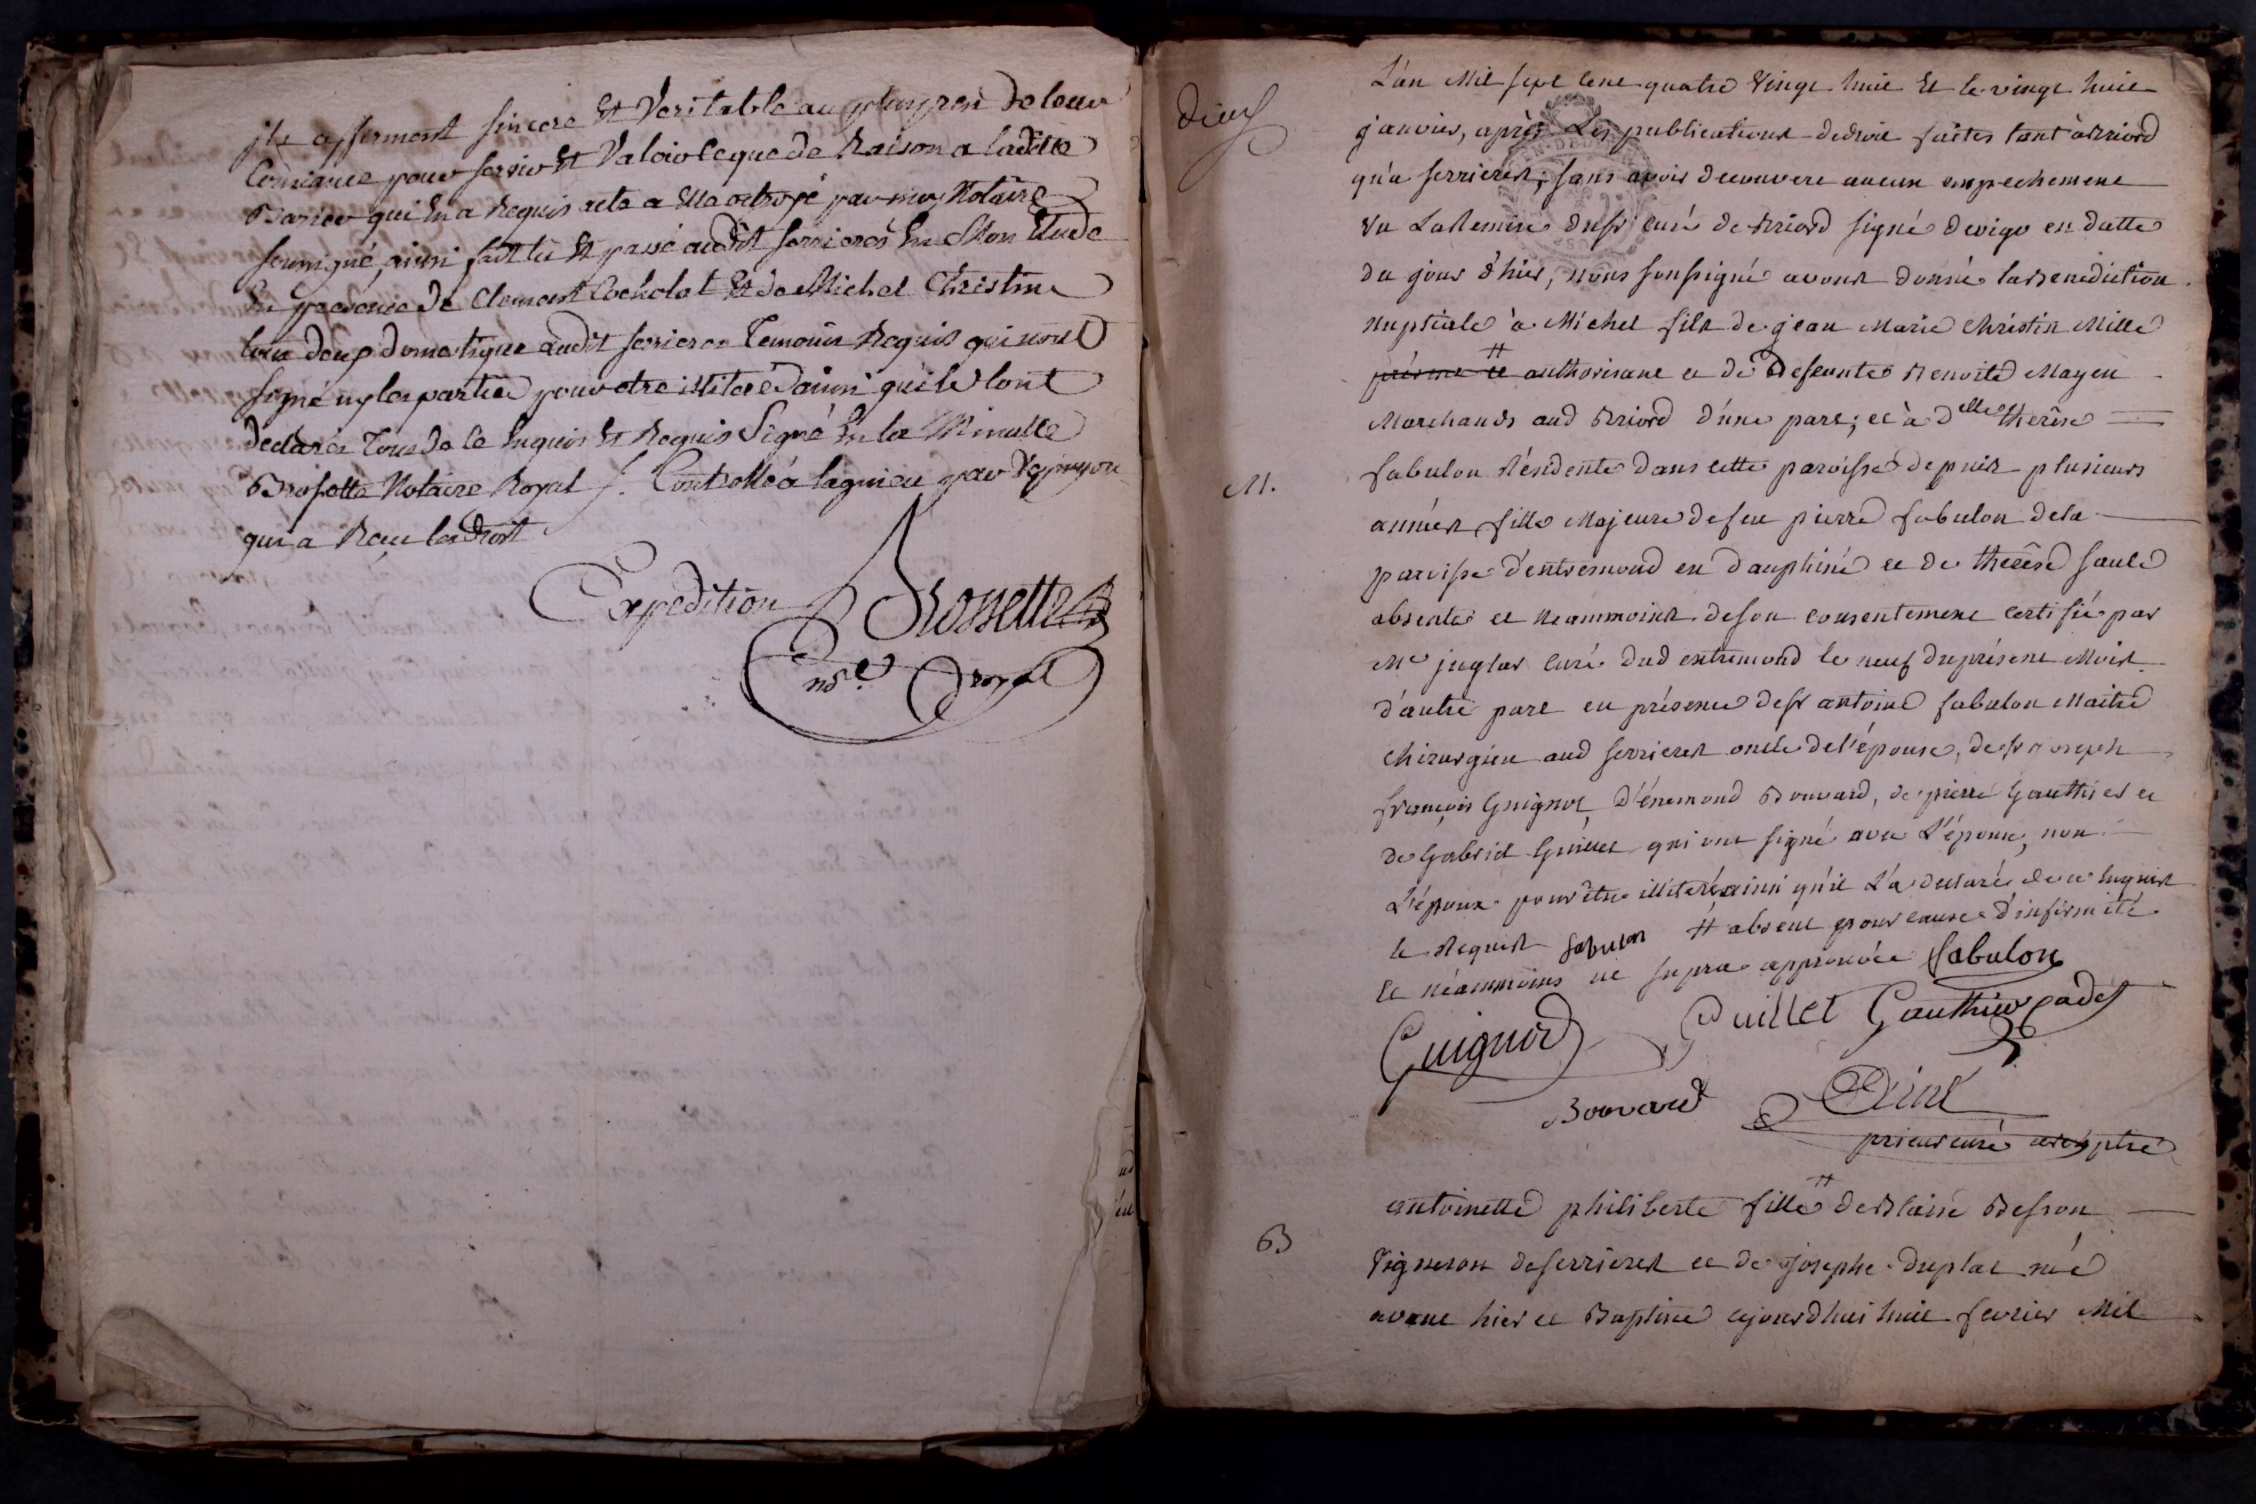 ils afferment sincere Et Veritable au plus pres de leur
Conscience pour servir Et Valoir ce que de Raison a ladite
qui En a Requis acte a Elle octroyé par moy Notaire
soussigné, ainsi fait lu Et passé audit serrieres En Mon Etude
En presence De Clement Cocholat Et de Michel Christin
tous deux domestique audit serrieres Temoins Requis qui n'ont
signé ny les parties pour etre illiteré d'ainsi qu'ils l'ont
declarés Tous De ce Enquis Et Requis Signé En la Minutte
Brossette Notaire Royal /. Controllé à lagnieu par
qui a Reçu les Droit
Expedition Brossette
nre royal
L'an Mil sept cent quatre Vingt huit Et le vingt huit
janvier, après Les publications de droit faites tant à Briord
qu'a serrieres, sans avoir decouvert aucun empechement
Vu La Remise du sr curé de Briord signé devigo en datte
du jour d'hier, nous soussigné avons donné la benediction
nuptiale à Michel fils de jean Marie Christin Millé
présent et # authorisant et de Defeunte Benoite Mayeu
Marchands aud Briord d'une part; et à Delle therêse
M. fabulon Résidente dans cette paroisse depuis plusieurs
années fille Majeure de feu pierre fabulon de la
paroisse d'entremond en dauphiné et de therêse saule
absente et neammoins de son consentement certifié par
Mre juglar curé dud entremond le neuf du présent Mois
d'autre part en présence de sr antoine fabulon Maitre
chirurgien aud serrieres oncle de l'épouse, de sr joseph
françois Guignot, d'énemond Bouvard, de pierre Gauthier et
de Gabriel Guillet qui ont signé avec L'épouse, non
L'époux pour être illiteré ainsi qu'il L'a declaré de ce Enquis
et Requis fabulon # absent pour cause d'infirmité
et néammoins ut supra approuvée fabulon
Guignod Guillet Gauthier cadet
Bouvard
prieur curé archiptre
antoinette philiberte fille # de Blaise Besson
B Vigneron de serrieres et de josephe duplat née
avant hier et Baptisée aujourd'hui huit fevrier Mil